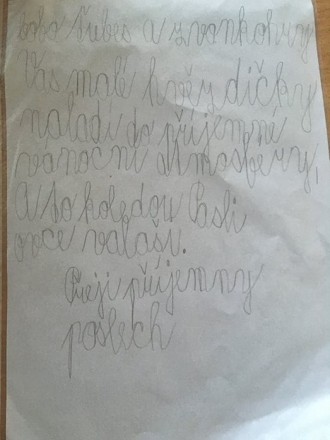 a zvonkohry
Vás malé hvězdičky
naladí do příjemné
vánoční atmosféry,
A to koledou Pásli
ovce valaši.
Přeji příjemny
poslech